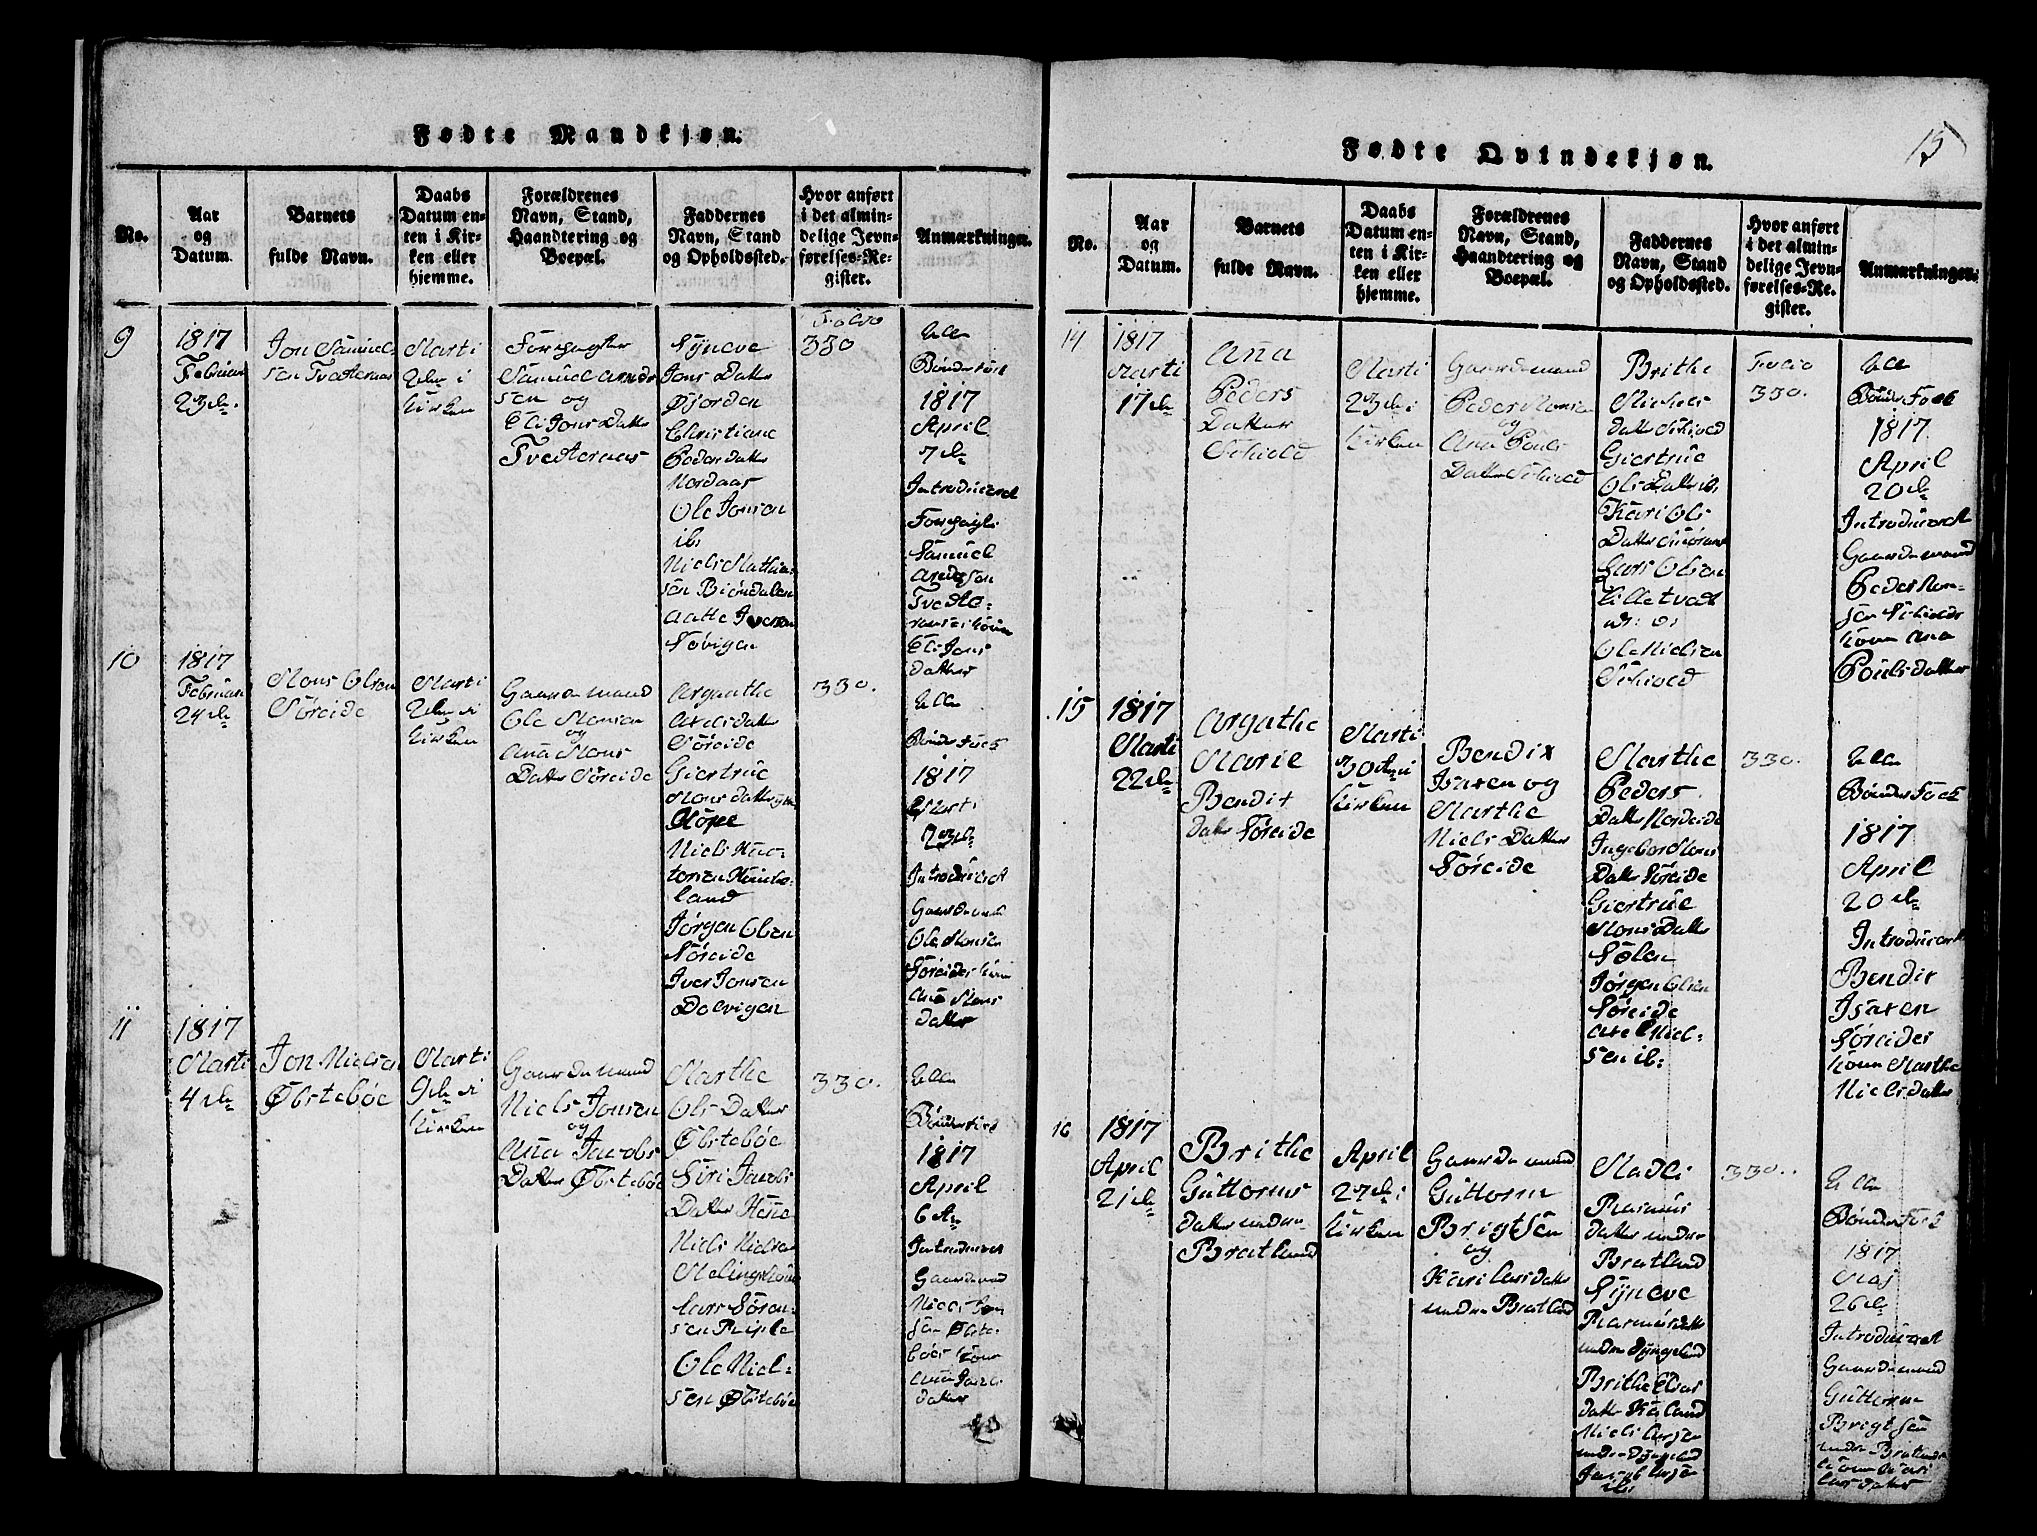 Fødte Mandkjøn.
No.
Aar
og
Datum.
Barnets
fulde Navn.
Daabs
Datum en-
ten i Kir-
ken eller
hjemme.
Forældrenes
Navn, Stand,
Haandtering og
Boepæl.
Faddernes
Navn, Stand
og Opholdssted.
Hvor anført
i det almin-
delige Jevn-
førelses-Re-
gister.
Anmærkninger.
9
1817
Februari
23de
Jon Samuel-
sen Tvedteraas
Marti
2den i
Kirken
Samuel
sen og
Eli Jons Datter
Tvedteraas
Syneve
Jons Datter
Øjorden
Christiane
Peders datter
Nordaas
Ole Jonsen
ib:
Niels Mathia-
sen Biørndalen
Aatte Iversen
Søvigen
Folio
330
Alle
Bønder Folk
1817
April
7de
Introduceret
Samuel
Eli Jons
datter
10
1817
Februari
24de
Mons Olsen
Søreide
Marti
2den i
Kirken
Gaardemand
Ole Monsen
og
Ana Mons
Datter Søreide
Argaathe
Axelsdatter
Søreide
Giertrue
Mons datter
Niels
land
Jørgen Olsen
Søreide
Iver Jonsen
Dolvigen
330.
Alle
Bønder Folk
1817
Marti
Introduceret
Gaardemand
Ole Monsen
Søreides Kone
Ana Mons
datter
11
1817
Marti
4de
Jon Nielsen
Øbstebøe
Marti
9de i
Kirken
Gaardemand
Niels Jonsen
og
Ana Jacobs
Datter Øbstebøe
Marthe
Ols Datter
Øbstebøe
Siri Jacobs
Datter
Niels Nielsen
Lars Søren-
sen
Ole Niel-
sen Øbstebøe
330.
Alle
Bønder Folk
1817
April
6te
Introduceret
Gaardemand
Niels Jon
sen Øbste
bøes Kone
Ana Jacobs
datter
Fødte Qvindekjøn.
15
No.
Aar
og
Datum.
Barnets
fulde Navn.
Daabs
Datum en-
ten i Kir-
ken eller
hjemme.
Forældrenes
Navn, Stand,
Haandtering og
Boepæl.
Faddernes
Navn, Stand
og Opholdssted.
Hvor anført
i det almin-
delige Jevn-
førelses-Re-
gister.
Anmærkninger.
14
1817
Marti
17de
Ana
Peders
Datter
Schiold
Marti
23de i
Kirken
Gaardemand
Peder Monsen
og
Ana Pouls
Datter Schiold
Brithe
Michels
datter Schiold
Giertrue
Ols Datter ib:
Kari Ols
Datter
Lars Olsen
Lilletvedt
Ole Nielsen
Schiold
Folio
330.
Alle
Bønder Folk
1817
April
20de
Introduceret
Gaardemand
Peder Mon-
sen Schiolds
Kone Ana
Pouls datter
15
1817
Marti
22de
Argathe
Marie
Bendix
datter Søreide
Marti
30te i
Kirken
Bendix
Isaxen og
Marthe
Niels Datter
Søreide
Marthe
Peders
Datter Nordeide
Ingebor Mons
Datter Søreide
Giertrue
Mons Datter
Sølen
Jørgen Olsen
Søreide
Axel Niel-
sen ib:
330.
Alle
Bønder Folk
1817
April
20de
Introduceret
Bendix
Isaxen
Søreides
Kone Marthe
Niels datter
16
1817
April
21de
Brithe
Guttorms
datter undre
Bratland
April
27de i
Kirken
Gaardemand
Guttorm
Brigtsen
og
Kari Lars datter
undre Bratland
Madli
Rasmus
datter undre
Bratland
Syneve
Rasmus datter
undre Dyngeland
Brithe
datter Kaland
Niels Larsen
undre Dyngeland
Jacob Larsen
ib:
330.
Alle
Bønder Folk
1817
Maj
26de
Introduceret
Gaardemand
Guttorm
Brigtsen
undre Bratlands
Kone Kari
Lars datter